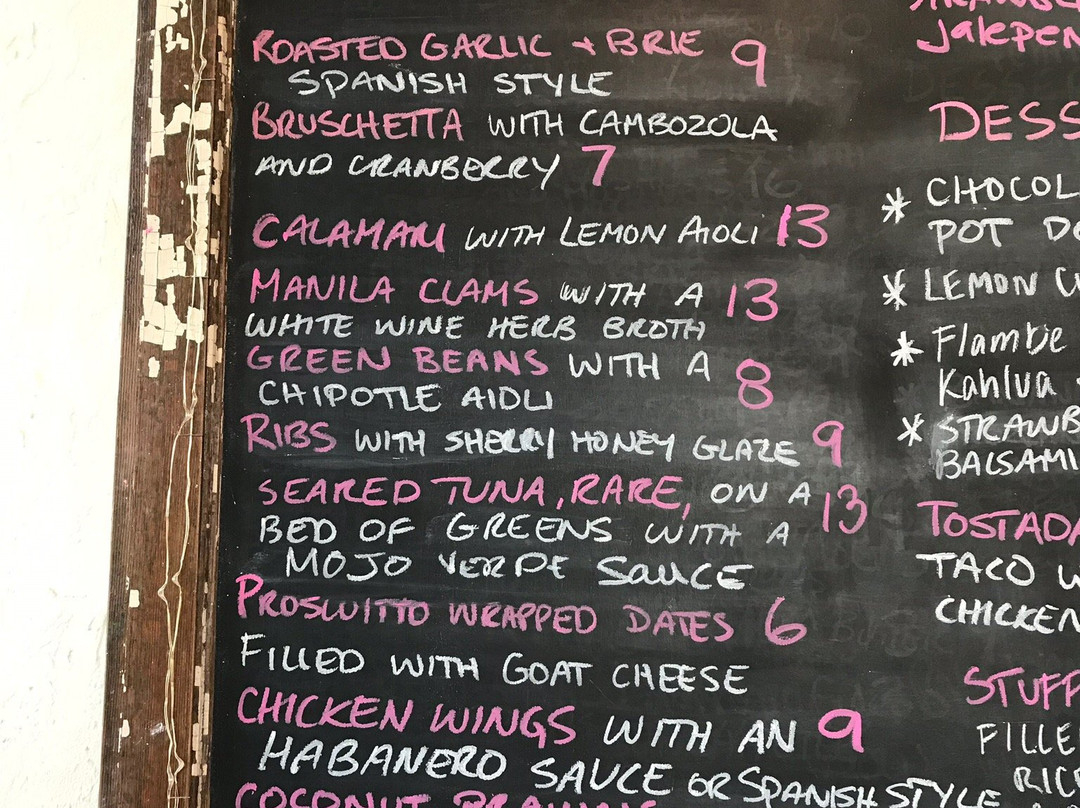 ROASTED GARLIC + BRIE 9
SPANISH STYLE
BRUSCHETTA WITH CAMBOZOLA
AND CRANBERRY 7
CALAMARI WITH LEMON AIOLI 13
MANILA CLAMS WITH A 13
WHITE WINE HERB BROTH
GREEN BEANS WITH A 8
CHIPOTLE AIOLI
RIBS WITH SHERRY HONEY GLAZE 9
SEARED TUNA, RARE, ON A 13
BED OF GREENS WITH A
MOJO VERDE SAUCE
PROSCUITTO WRAPPED DATES 6
FILLED WITH GOAT CHEESE
CHICKEN WINGS WITH AN 9
HABANERO SAUCE OR SPANISH STYLE
COCONUT PRAWNS
Jalepen
DESS
* CHOCOL
POT DO
* LEMON
* Flambe
Kahlua
* STRAWB
BALSAMI
TOSTADA
TACO W
CHICKEN
STUFF
FILLE
RICE